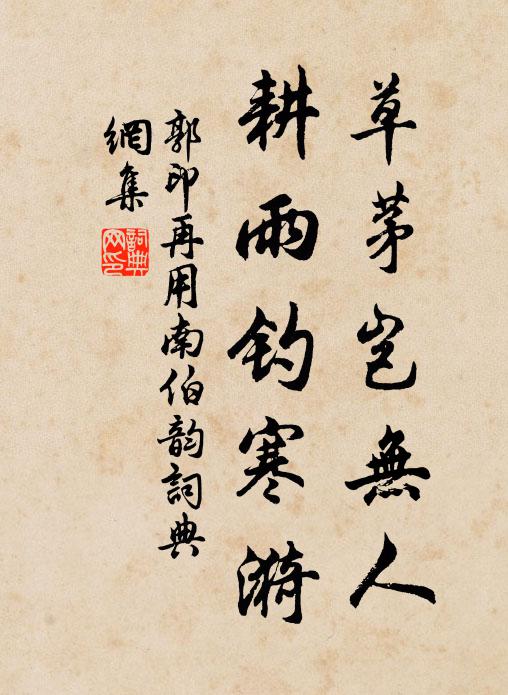 草茅豈無人
耕雨釣寒漪
郭印再用南伯韵詞典
網集
詞典網印